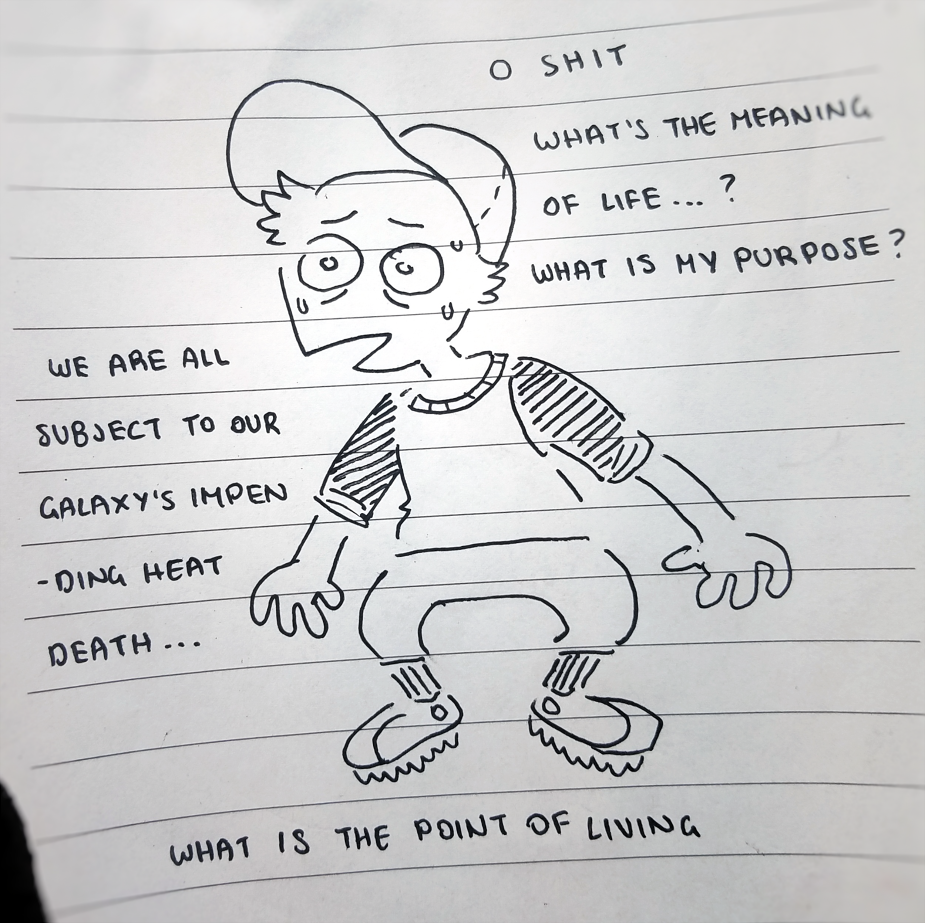 O SHIT
WHAT'S THE MEANING
OF LIFE...?
WHAT IS MY PURPOSE?
WE ARE ALL
SUBJECT TO OUR
GALAXY'S IMPEN
-DING HEAT
DEATH...
WHAT IS THE POINT OF LIVING